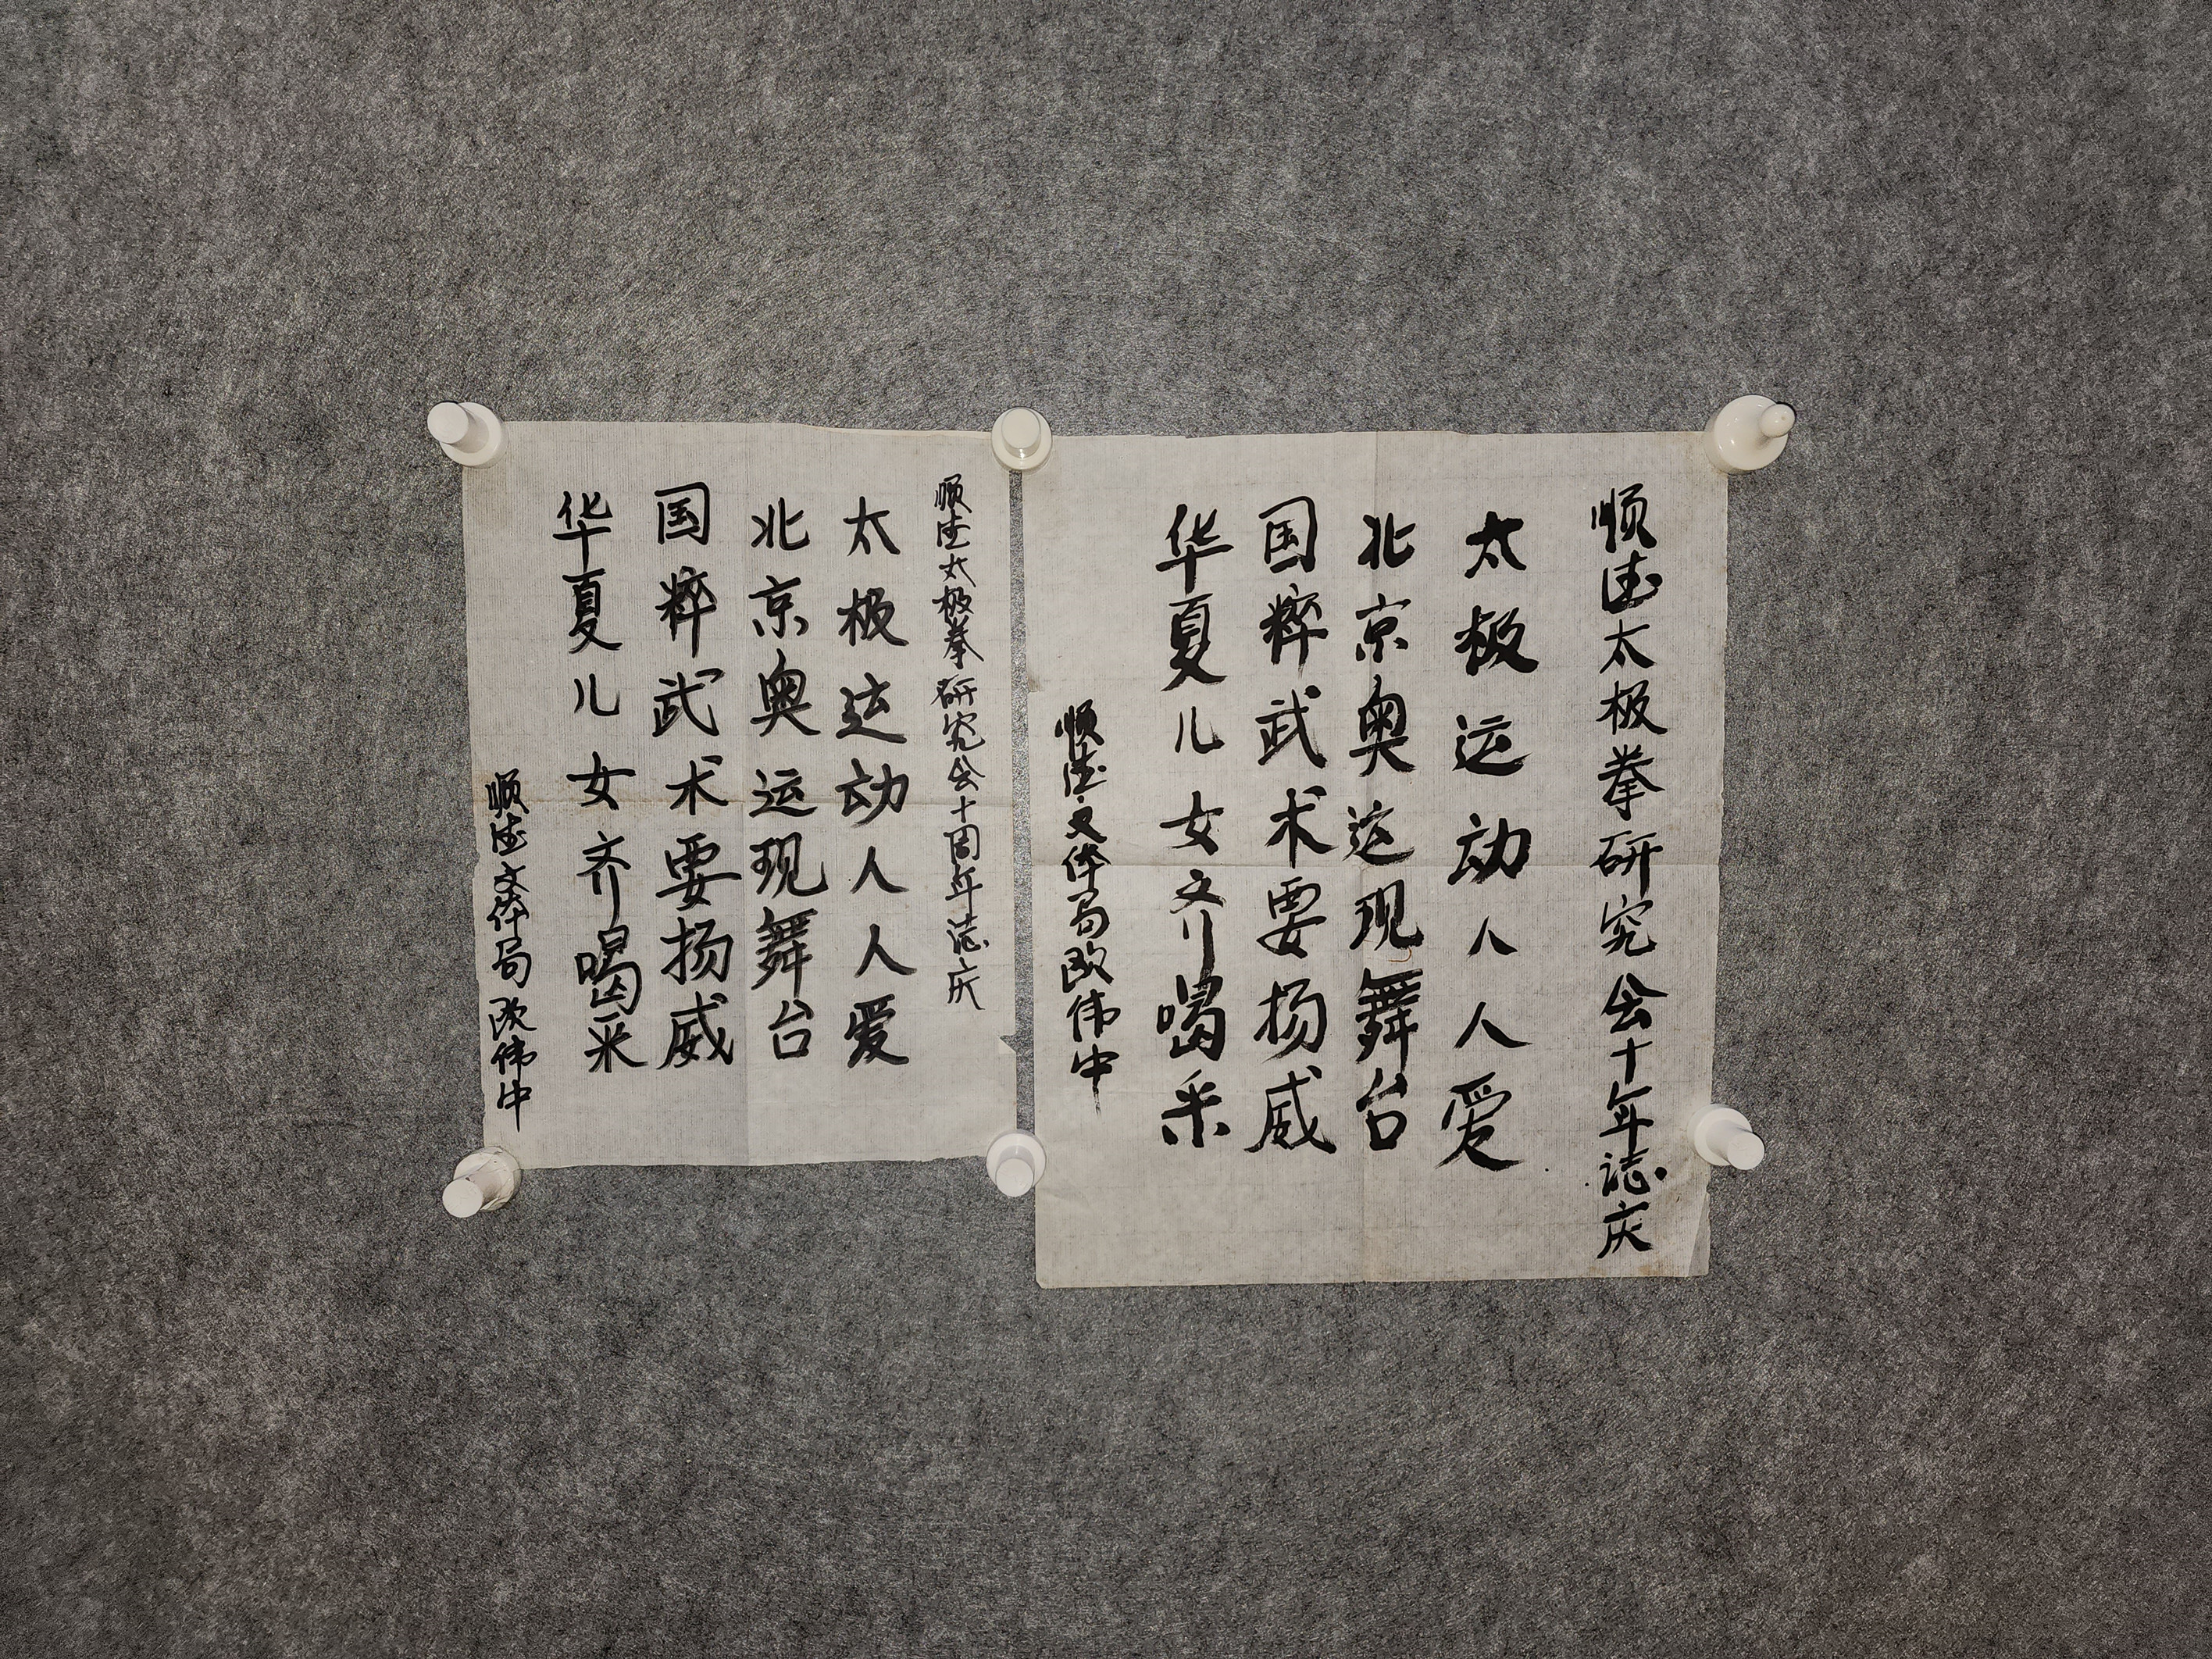 顺德太极拳研究会十年志庆
太极运动人人爱
北京奥运现舞台
国粹武术要扬威
华夏儿女齐喝采
顺德文体局欧伟中
顺德太极拳研究会十周年志庆
太极运动人人爱
北京奥运现舞台
国粹武术要扬威
华夏儿女齐喝采
顺德文体局欧伟中